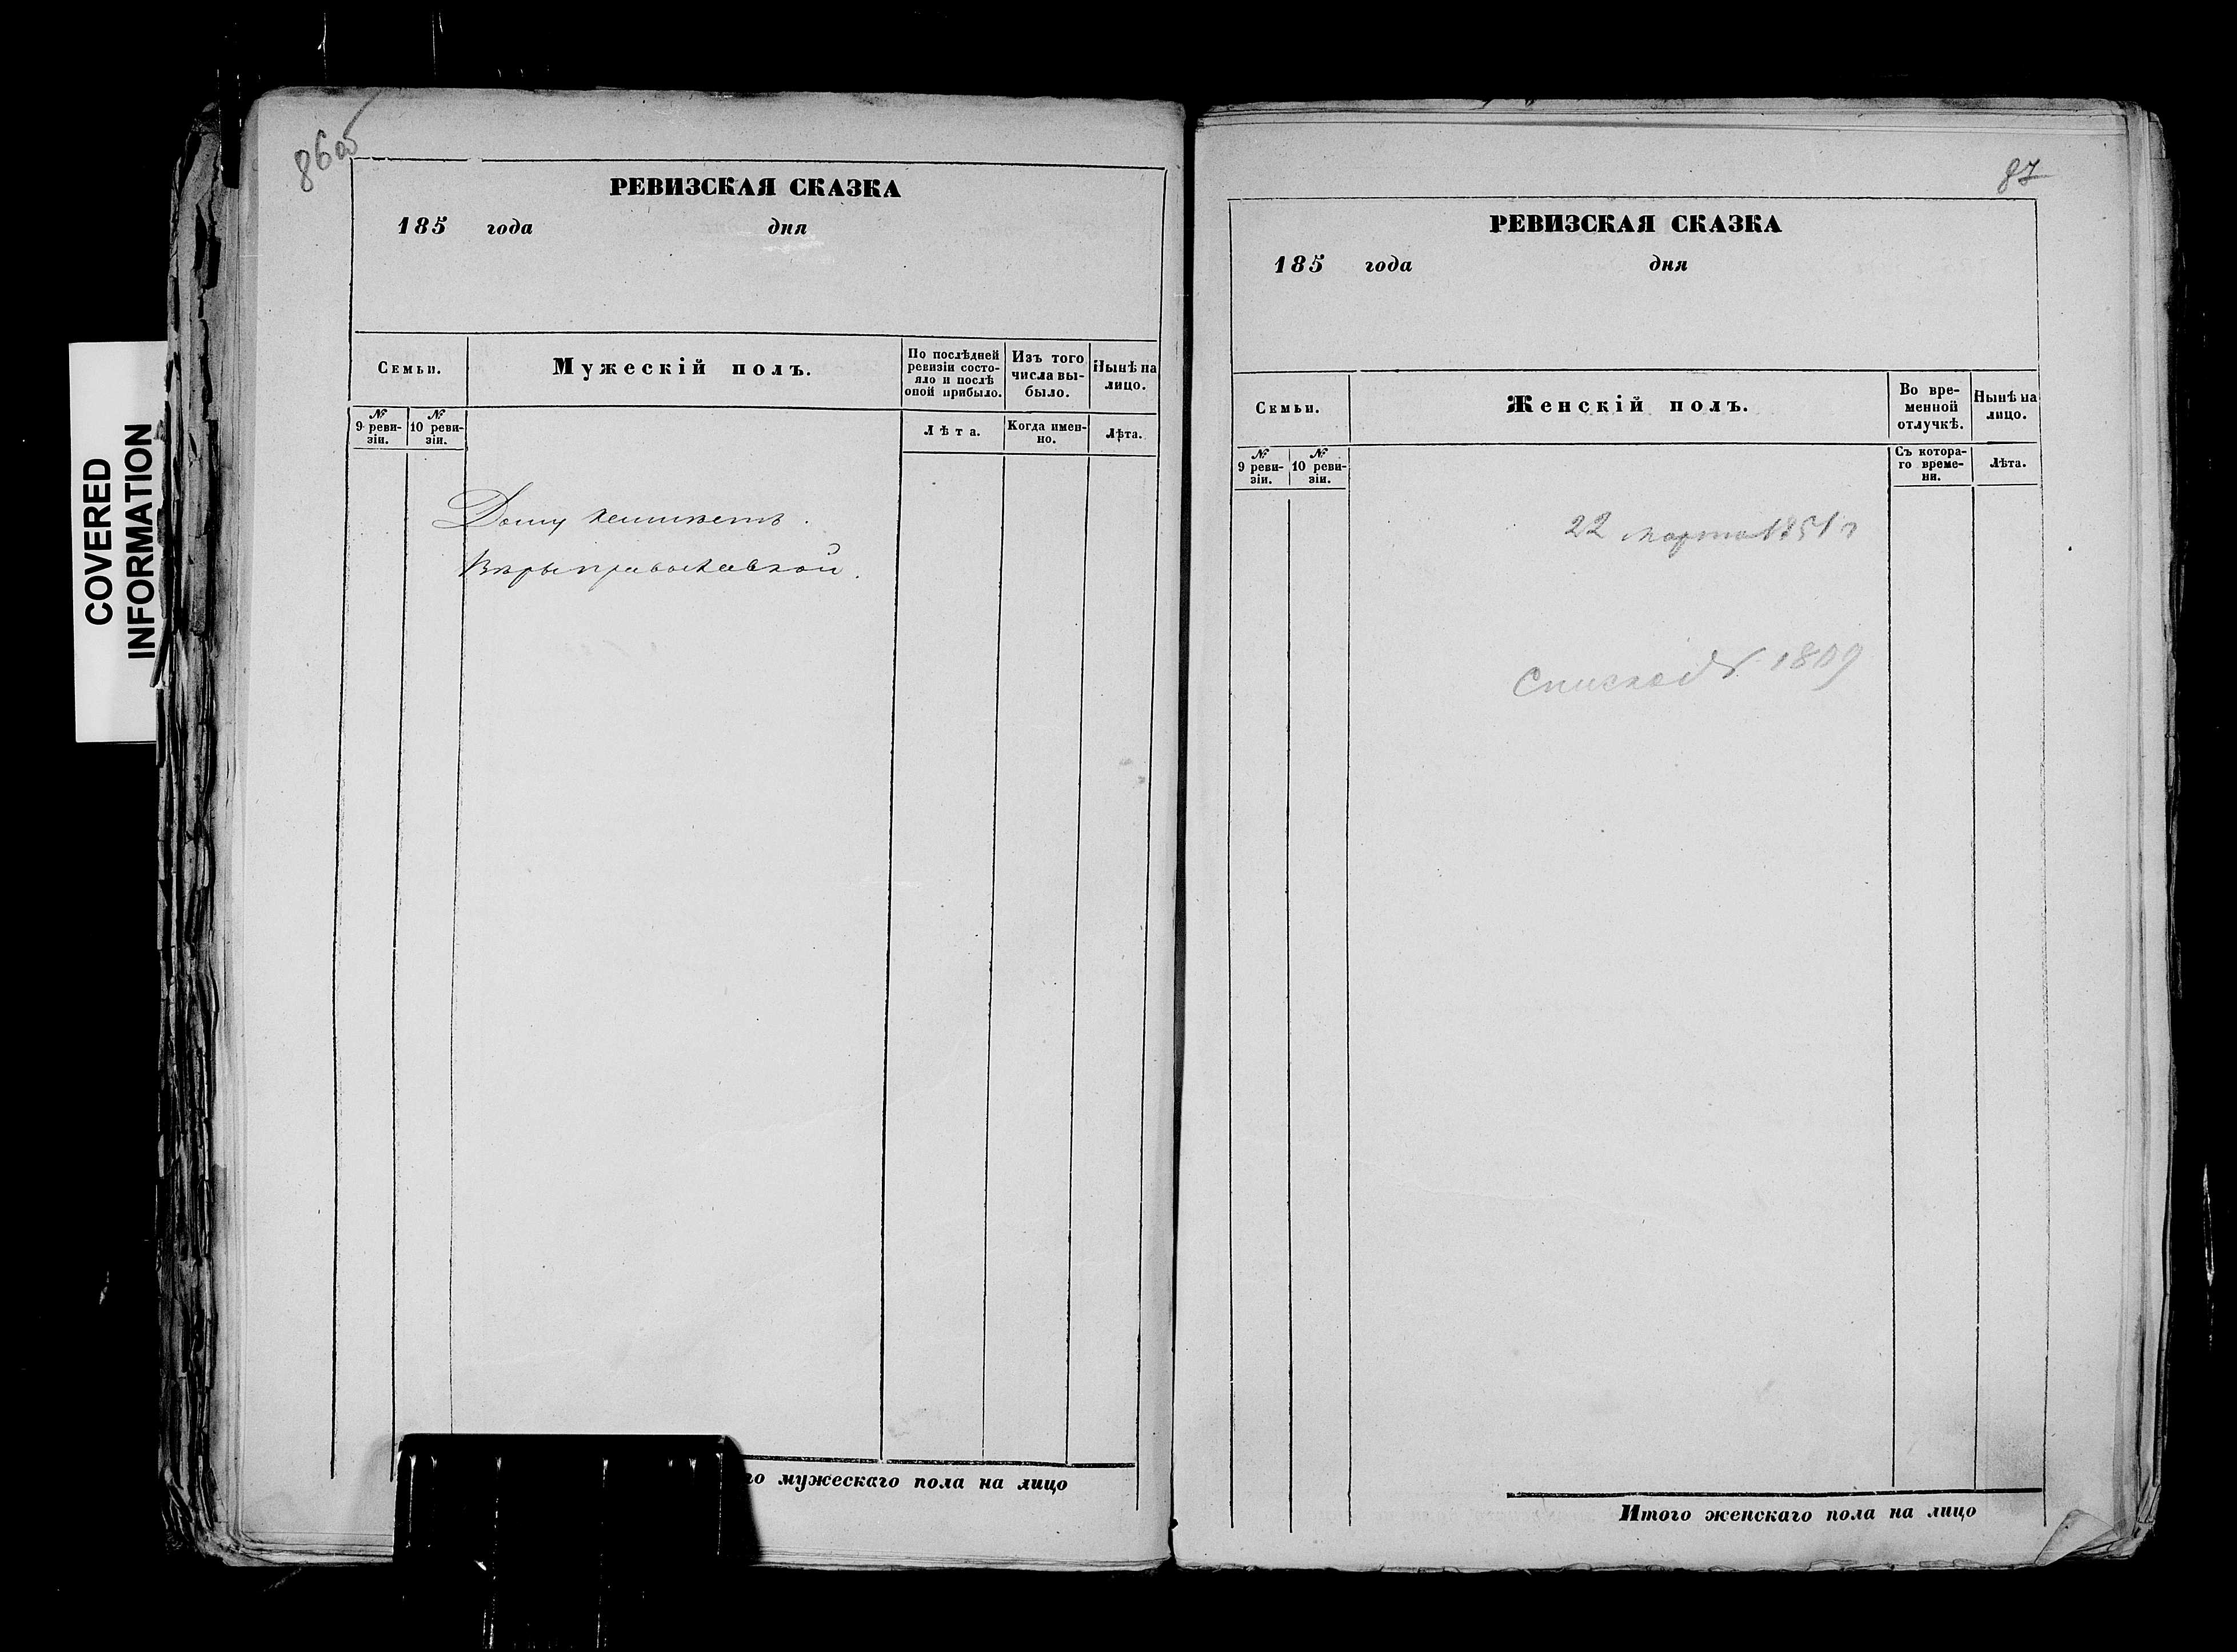 COVERED
INFORMATION
86об
РЕВИЗСКАЯ СКАЗКА
185 года дня
Семьи.
Мужескій полъ.
По послѣдней
ревизіи состо-
яло и послѣ
оной прибыло.
Изъ того
числа вы-
было.
Нынѣ на
лицо.
№
9 реви-
зіи.
№
10 реви-
зіи.
Лѣта.
Когда имен-
но.
Лѣта.
Дому неимѣетъ.
Вѣры православной.
го мужескаго пола на лицо
87
РЕВИЗСКАЯ СКАЗКА
185 года дня
Семьи.
Женскій полъ.
Во вре-
менной
отлучкѣ.
Нынѣ на
лицо.
№
9 реви-
зіи.
№
10 реви-
зіи.
Съ котора-
го време-
ни.
Лѣта.
22 марта 1851 г
Итого женскаго пола на лицо